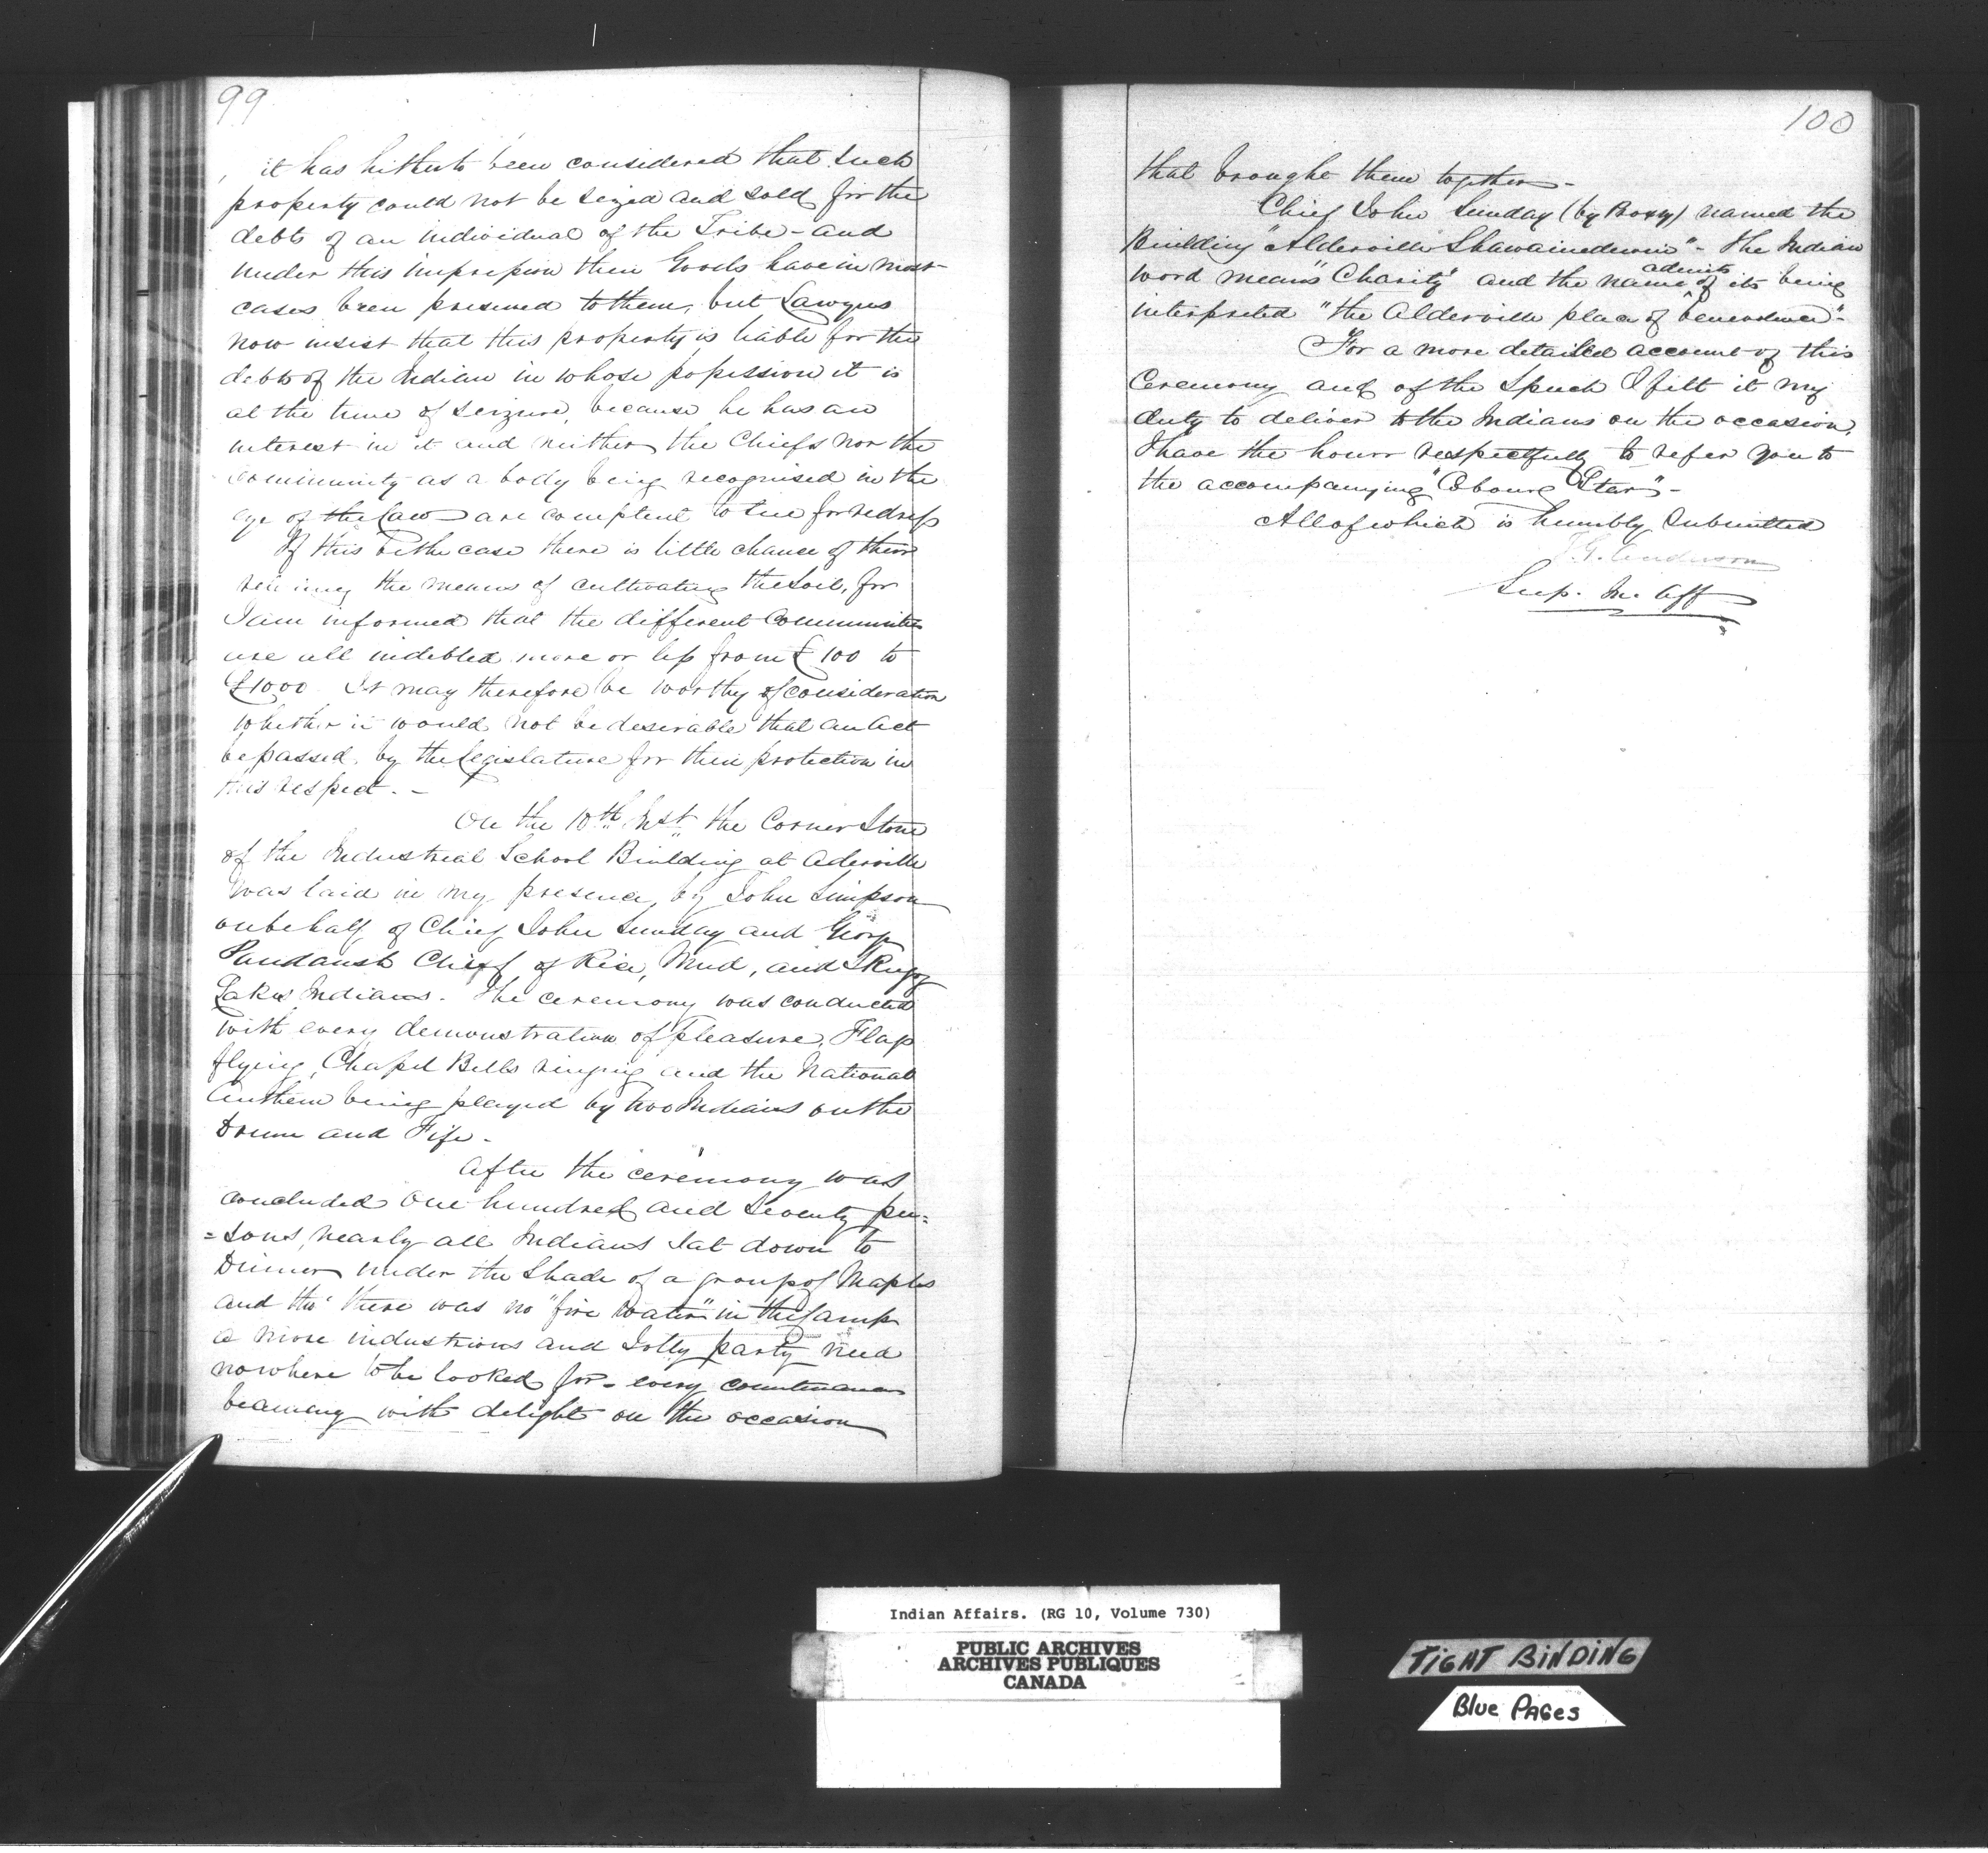 99
it has hitherto been considered that such
property could not be seized and sold for the
debts of an individual of the Tribe - and
under this impression their Goods have in most
cases been preserved to them, but Lawyers
now insist that this property is liable for the
debts of the Indian in whose possession it is
at the time of seizure, because he has an
interest in it and neither the Chiefs nor the
community as a body being recognised in the
eye of the law are competent to sue for redress
If this be the case there is little chance of their
the means of cultivating the Soil, for
I am informed that the different Communities
are all indebted more or less from £100 to
£1000. It may therefore be worthy of consideration
whether it would not be desirable that an Act
be passed, by the Legislature for their protection in
this respect. -
On the 10th Inst the Corner Stone
of the Industrial School Building at Aderville
was laid in my presence, by John Simpson
on behalf of Chief John Sunday and George
Paudaush Chief of Rice, Mud, and Skugog
Lakes Indians. The ceremony was conducted
with every demonstration of pleasure, Flags
flying, Chapel Bells ringing and the National
Anthem being played by two Indians on the
Drum and Fife -
After the ceremony was
concluded one hundred and seventy per=
=sons, nearly all Indians sat down to
Dinner under the Shade of a group of Maples
and tho' there was no "fire water" in the Camp
a more industrious and Jolly party need
nowhere to be looked for - every countenance
beaming with delight on the occasion
100
that brought them together -
Chief John Sunday (by Proxy) named the
Building "Alderville Shawainedewin" - The Indian
word means "Charity" and the name admits of its being
interpreted "the Alderville place of benevolence" -
For a more detailed account of this
Ceremony and of the Speech I felt it my
duty to deliver to the Indians on the occasion,
I have the honor respectfully to refer you to
the accompanying "Cobourg Star" -
All of which is humbly Submitted
T. G. Anderson
Sup. In. Aff
Indian Affairs. (RG 10, Volume 730)
PUBLIC ARCHIVES
ARCHIVES PUBLIQUES
CANADA
TIGHT BINDING
Blue PAGes